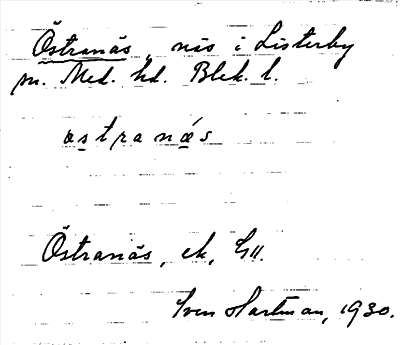 Östranäs, näs i Listerby
sn. Med. hd. Blek. l.
östranäs
Östranäs, ek,
Sven Hartman, 1930.